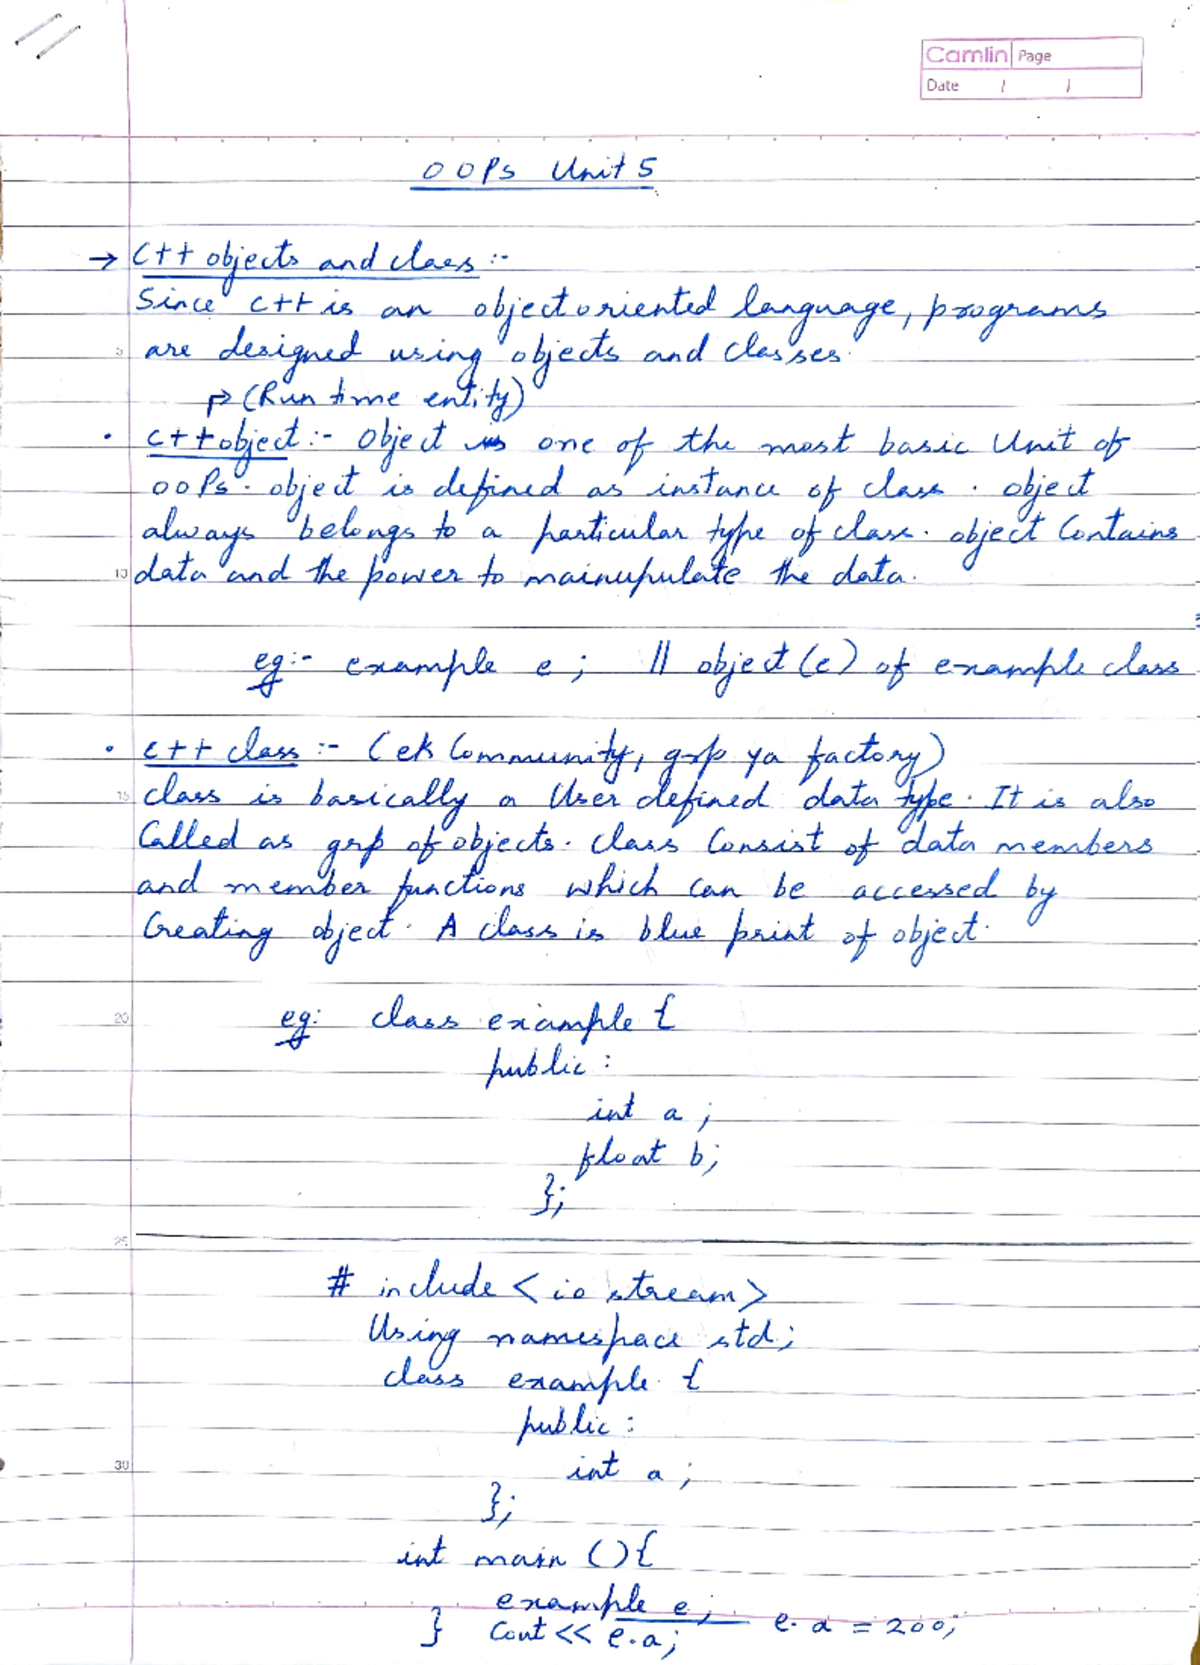 Camlin Page
Date / /
OOPs Unit 5
→ C++ objects and class :-
Since C++ is an object oriented language, programs
5 are designed using objects and classes.
(Run time entity)
• C++ object :- Object is one of the most basic Unit of
OOPs. object is defined as instance of class. object
always belongs to a particular type of class. object Contains
10 data and the power to mainupulate the data.
eg:- example e ; // object (e) of example class
• C++ class :- (ek Community, grp ya factory)
15 class is basically a User defined data type. It is also
Called as grp of objects. Class Consist of data members
and member functions which can be accessed by
Creating object. A class is blue print of object.
20 eg: class example {
public :
int a ;
float b;
};
25
# include < io stream >
Using namespace std ;
class example {
public :
30 int a ;
};
int main () {
example e ; e. a = 200;
} Cout << e.a;